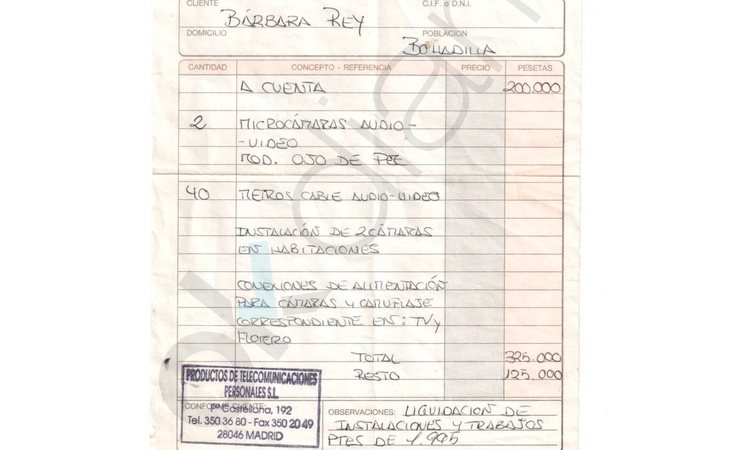 CLIENTE C.I.F. o D.N.I.
BÁRBARA REY
DOMICILIO POBLACION
BOHADILLA
CANTIDAD CONCEPTO - REFERENCIA PRECIO PESETAS
A CUENTA 200.000
2 MICROCÁMARAS AUDIO-
-VIDEO
MOD. OJO DE PEZ
40 METROS CABLE AUDIO-VIDEO
INSTALACIÓN DE 2 CÁMARAS
EN HABITACIONES
CONEXIONES DE ALIMENTACIÓN
PARA CÁMARAS Y CAMUFLAJE
CORRESPONDIENTE EN: TV y
FLOTERO
TOTAL 325.000
RESTO 125.000
PRODUCTOS DE TELECOMUNICACIONES
PERSONALES S.L.
Pº Castellana, 192
Tel. 350 36 80 - Fax 350 20 49
28046 MADRID
CONFORME CLIENTE:
OBSERVACIONES: LIQUIDACIÓN DE
INSTALACIONES Y TRABAJOS
PTES DE 1.995
okdiario